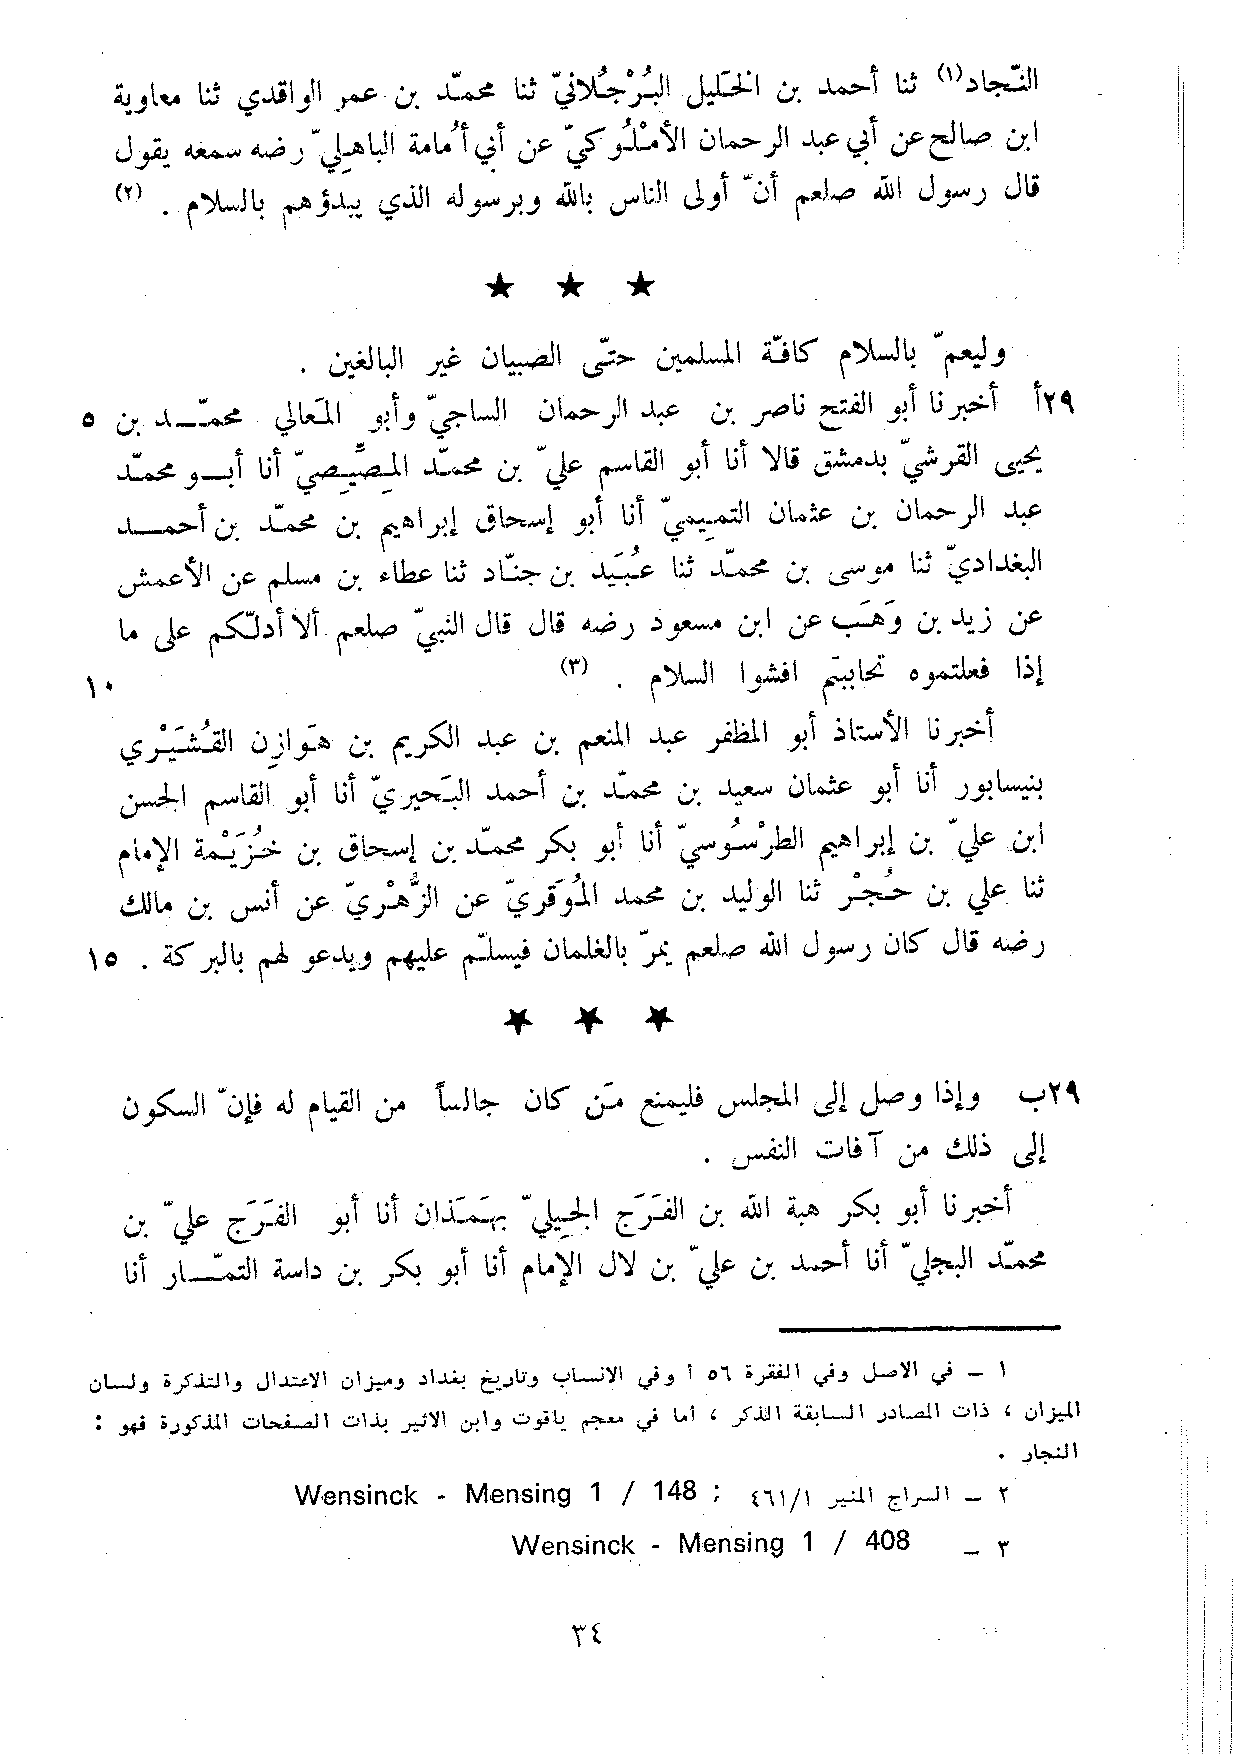 النّجاد(١) ثنا أحمد بن الخَليل البُرْجُلانيّ ثنا محمّد بن عمر الواقدي ثنا معاوية
ابن صالح عن أبي عبد الرحمان الأمْلُوكيّ عن أبي أُمامة الباهِليّ رضه سمعه يقول
قال رسول الله صلعم أنّ أولى الناس بالله وبرسوله الذي يبدؤهم بالسلام . (٢)
★ ★ ★
وليعمّ بالسلام كافّة المسلمين حتّى الصبيان غير البالغين .
٢٩أ أخبرنا أبو الفتح ناصر بن عبد الرحمان الساجيّ وأبو المَعالي محمّد بن ٥
يحيى القرشيّ بدمشق قالا أنا أبو القاسم عليّ بن محمّد المِصّيصيّ أنا أبو محمّد
عبد الرحمان بن عثمان التميميّ أنا أبو إسحاق إبراهيم بن محمّد بن أحمد
البغداديّ ثنا موسى بن محمّد ثنا عُبَيد بن جنّاد ثنا عطاء بن مسلم عن الأعمش
عن زيد بن وَهَب عن ابن مسعود رضه قال قال النبيّ صلعم ألا أدلّكم على ما
إذا فعلتموه تحاببتم افشوا السلام . (٣) ١٠
أخبرنا الأستاذ أبو المظفر عبد المنعم بن عبد الكريم بن هَوازِن القُشَيْري
بنيسابور أنا أبو عثمان سعيد بن محمّد بن أحمد البَحيريّ أنا أبو القاسم الحسن
ابن عليّ بن إبراهيم الطرْسُوسيّ أنا أبو بكر محمّد بن إسحاق بن خُزَيْمة الإمام
ثنا علي بن حُجْر ثنا الوليد بن محمد المُوَقريّ عن الزُّهْريّ عن أنس بن مالك
رضه قال كان رسول الله صلعم يمرّ بالغلمان فيسلّم عليهم ويدعو لهم بالبركة . ١٥
★ ★ ★
٢٩ب وإذا وصل إلى المجلس فليمنع مَن كان جالساً من القيام له فإنّ السكون
إلى ذلك من آفات النفس .
أخبرنا أبو بكر هبة الله بن الفَرَج الجِيليّ بهَمَذان أنا أبو الفَرَج عليّ بن
محمّد البجليّ أنا أحمد بن عليّ بن لال الإمام أنا أبو بكر بن داسة التمّار أنا
١ – في الاصل وفي الفقرة ٥٦ أ وفي الانساب وتاريخ بغداد وميزان الاعتدال والتذكرة ولسان
الميزان ، ذات المصادر السابقة الذكر ، أما في معجم ياقوت وابن الاثير بذات الصفحات المذكورة فهو :
النجار .
٢ – السراج المنير ٤٦١/١ ; Wensinck - Mensing 1 / 148
٣ – Wensinck - Mensing 1 / 408
٣٤